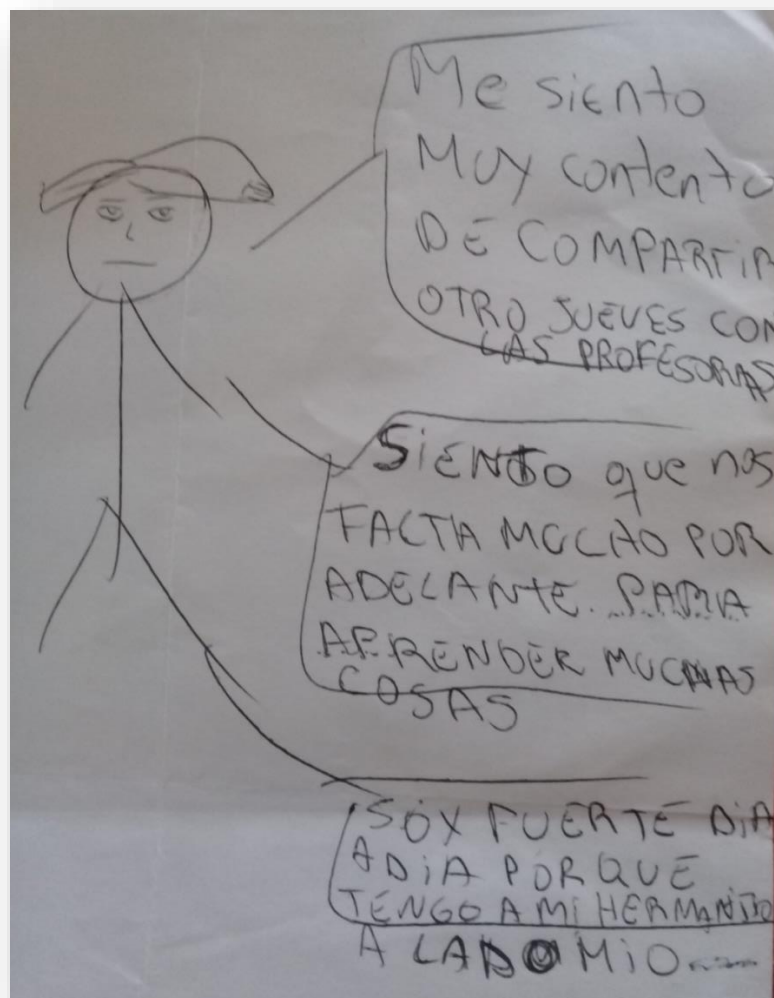 Me siento
MUY contento
DE COMPARTIR
OTRO JUEVES CON
LAS PROFESORAS
SIENTO que nos
FACTA MUCHO POR
ADELANTE. PARA
APRENDER MUCHAS
COSAS
SOY FUERTE DIA
A DIA PORQUE
TENGO A MI HERMANITO
A LADO MIO